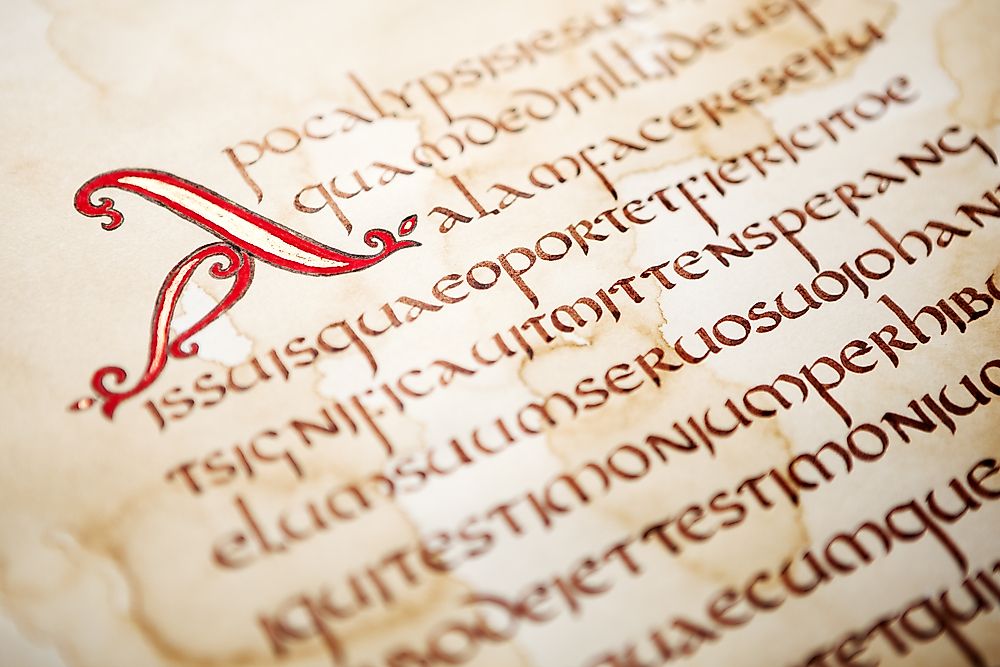 Apocalypsisiesuch
quamdeditillideusp
alamfacereseru
issuisquaeoportetfiericitoe
tsignificauitmittensperang
elumsuumseruosuoiohann
iquitestimoniumperhib
bodeiettestimoniu
uaecumque
etqui